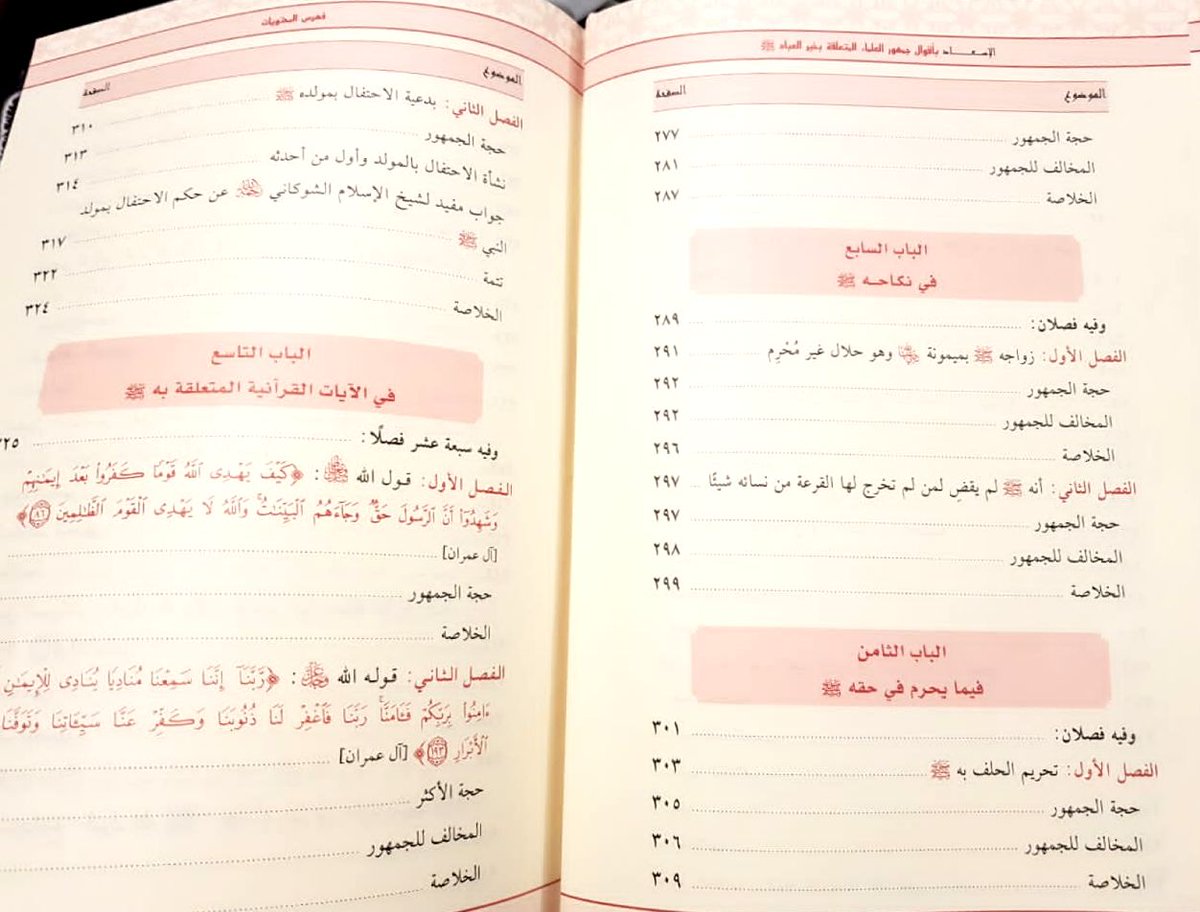 الإسعــاد بأقوال جمهور العلماء المتعلقة بخير العباد ﷺ
الموضوع الصفحة
حجة الجمهور ٢٧٧
المخالف للجمهور ٢٨١
الخلاصة ٢٨٧
الباب السابع
في نكاحـه ﷺ
وفيه فصلان: ٢٨٩
الفصل الأول: زواجه ﷺ بميمونة رضي الله عنها وهو حلال غير مُحْرِم ٢٩١
حجة الجمهور ٢٩٢
المخالف للجمهور ٢٩٢
الخلاصة ٢٩٦
الفصل الثاني: أنه ﷺ لم يقضِ لمن لم تخرج لها القرعة من نسائه شيئًا ٢٩٧
حجة الجمهور ٢٩٧
المخالف للجمهور ٢٩٨
الخلاصة ٢٩٩
الباب الثامن
فيما يحرم في حقه ﷺ
وفيه فصلان: ٣٠١
الفصل الأول: تحريم الحلف به ﷺ ٣٠٣
حجة الجمهور ٣٠٥
المخالف للجمهور ٣٠٦
الخلاصة ٣٠٩
فهرس المحتويات
الموضوع الصفحة
الفصل الثاني: بدعية الاحتفال بمولده ﷺ ٣١٠
حجة الجمهور ٣١٣
نشأة الاحتفال بالمولد وأول من أحدثه ٣١٤
جواب مفيد لشيخ الإسلام الشوكاني رحمه الله عن حكم الاحتفال بمولد
النبي ﷺ ٣١٧
تتمة ٣٢٢
الخلاصة ٣٢٤
الباب التاسع
في الآيات القرآنية المتعلقة به ﷺ
وفيه سبعة عشر فصلًا: ٣٢٥
الفصل الأول: قول الله ﷿: ﴿كَيْفَ يَهْدِى ٱللَّهُ قَوْمًا كَفَرُوا۟ بَعْدَ إِيمَـٰنِهِمْ
وَشَهِدُوٓا۟ أَنَّ ٱلرَّسُولَ حَقٌّ وَجَآءَهُمُ ٱلْبَيِّنَـٰتُ ۚ وَٱللَّهُ لَا يَهْدِى ٱلْقَوْمَ ٱلظَّـٰلِمِينَ ٨٦﴾
[آل عمران]
حجة الجمهور
الخلاصة
الفصل الثاني: قوله الله ﷿: ﴿رَّبَّنَآ إِنَّنَا سَمِعْنَا مُنَادِيًا يُنَادِى لِلْإِيمَـٰنِ
ءَامِنُوا۟ بِرَبِّكُمْ فَـَٔامَنَّا ۚ رَبَّنَا فَٱغْفِرْ لَنَا ذُنُوبَنَا وَكَفِّرْ عَنَّا سَيِّـَٔاتِنَا وَتَوَفَّنَا
ٱلْأَبْرَارِ ١٩٣﴾ [آل عمران]
حجة الأكثر
المخالف للجمهور
الخلاصة